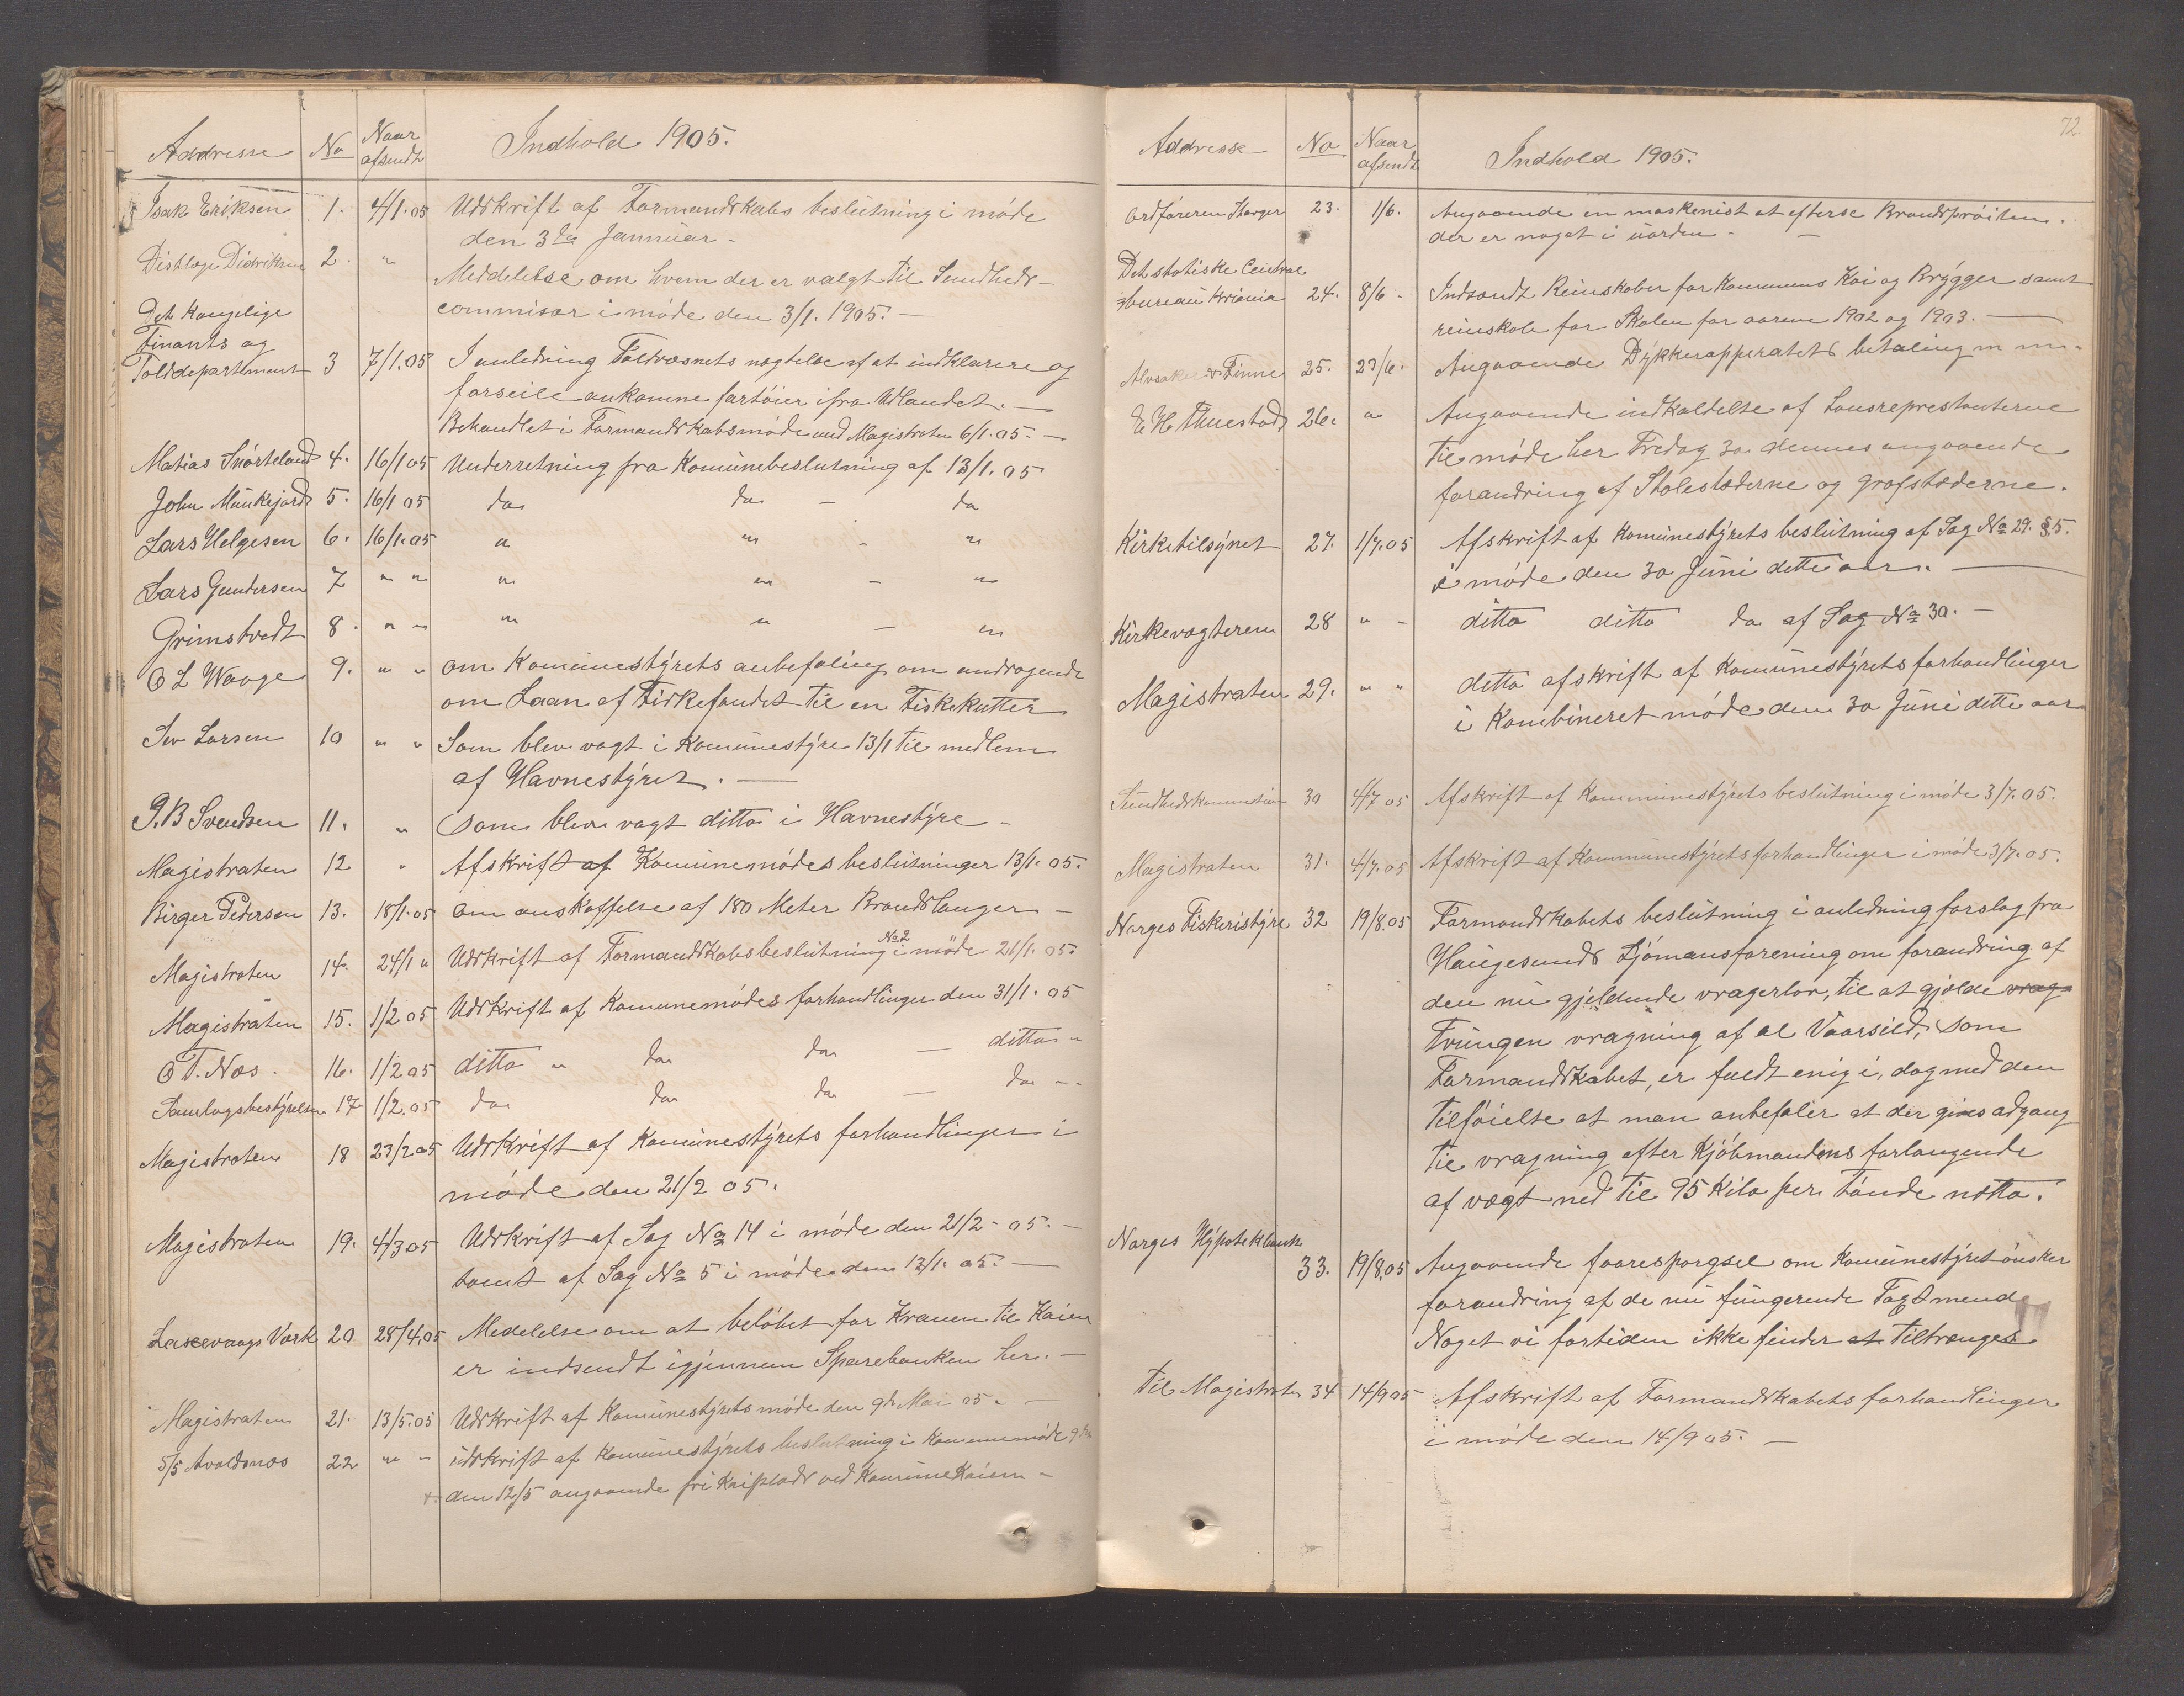 Addresse No Naar afsendt Indhold 1905.
Isak Eriksen 1. 4/1.05 Udskrift af Formandskabs beslutning i møde
den 3die Januar -
Distlæge Didriksen 2. " Meddelelse om hvem der er valgt til Sundheds-
commisær i møde den 3/1. 1905. -
Det Kongelige
Finants og
Tolddepartement 3 7/1.05 I anledning Toldvæsnets nægtelse af at indklarere og
forseile ankomne fartøier ifra Udlandet. -
Behandlet i Formandskabsmøde med Magistraten 6/1.05. -
Matias Snørteland 4. 16/1 05 Underretning fra Komunebeslutning af 13/1. 05
John Munkejord 5. 16/1 05 do do - do
Lars Helgesen 6. 16/1.05 " " - "
Lars Gundersen 7 " " " " - "
Grimstvedt 8. " " " " - "
O L Waage 9. " " om Komunestyrets anbefaling om andragende
om Laan af Fiskefondet til en Fiskekutter
Sev Larsen 10 " " Som blev vagt i Komunestyre 13/1 til medlem
af Havnestyret. -
P.B Svendsen 11. " som blev vagt ditto i Havnestyre -
Magistraten 12 " Afskrift af Komunemødes beslutninger 13/1. 05.
Birger Pedersen 13. 18/1.05 om anskaffelse af 180 Meter Brandslanger -
Magistraten 14. 24/1 " Udskrift af Formandskabsbeslutning No 2 i møde 21/1. 05.
Magistraten 15. 1/2 05 Udskrift af Komunemødes forhandlinger den 31/1. 05
O T. Næs. 16. 1/2 05 ditto " do do - ditto "
Samlagsbestyrelsen 17 1/2.05 do do do - do - -
Magistraten 18 23/2 05 Udskrift af Komunestyrets forhandlinger i
møde den 21/2 05.
Magistraten 19. 4/3 05 Udskrift af Sag No 14 i møde den 21/2 - 05. -
samt af Sag No 5 i møde den 13/1. 05. -
Laxevaags Værk 20 28/4.05 Medelelse om at beløbet for Kranen til Kaien
er indsendt igjennem Sparebanken her. -
Magistraten 21. 13/5.05 Udskrift af Komunestyrets møde den 9de Mai 05. -
S/S Avaldsnæs 22 " " udskrift af Komunestyrets beslutning i Komunemøde 9de
den 12/5 angaaende fri Kaiplads ved Komunekaien -
72.
Addresse No Naar afsendt Indhold 1905.
Ordføreren Skorger 23. 1/6. Angaaende en maskenist at efterse Brandsprøiten.
der er noget i uorden. -
Det statiske Central
bureau Kriania 24. 8/6 - Indsendt Reinskaber for Kommunens Kai og Brygger samt
reinskab for Skolen for aarene 1902 og 1903. -
Alvsaker & Finne 25. 23/6. Angaaende Dykkerapperatets betaling m m.
E H Thuestad 26. " Angaaende indkaldelse af Sonsreprestanterne
til møde her Fredag 30 dennes angaaende
forandring af Stolestæderne og grafstæderne.
Kirketilsynet 27. 1/7.05 Afskrift af Komunestyrets beslutning af Sag No 29. § 5.
i møde den 30 Juni dette aar. -
Kirkevægteren 28 " - ditto ditto do af Sag No 30. -
Magistraten 29. " " ditto afskrift af Komunestyrets forhandlinger
i Kombineret møde den 30 Juni dette aar
Sundhedskommetion 30 4/7 05 Afskrift af Kommunestyrets beslutning i møde 3/7. 05.
Magistraten 31. 4/7.05 Afskrift af Kommunestyrets forhandlinger i møde 3/7. 05.
Norges Fiskeristyre 32 19/8.05 Formandskabets beslutning i anledning forslag fra
Haugesunds Sjømansforening om forandring af
den nu gjeldende vragerlov, til at gjælde vrag
tvungen vragning af al Vaarsild, som
Formandskabet, er fuldt enig i, dog med den
tilføielse at man anbefaler at der gives adgang
til vragning efter Kjøbmandens forlangende
af vægt ned til 95 Kilo per tønde netto.
Norges Hypotekbank
33. 19/8.05 Angaaende foorespørgsel om Komunestyret ønsker
forandring af de nu fungerende Tagstmend
Noget vi fortiden ikke finder at tiltrænges
til Magistraten 34 14/9 05 Afskrift af Formandskabets forhandlinger
i møde den 14/9 05. -